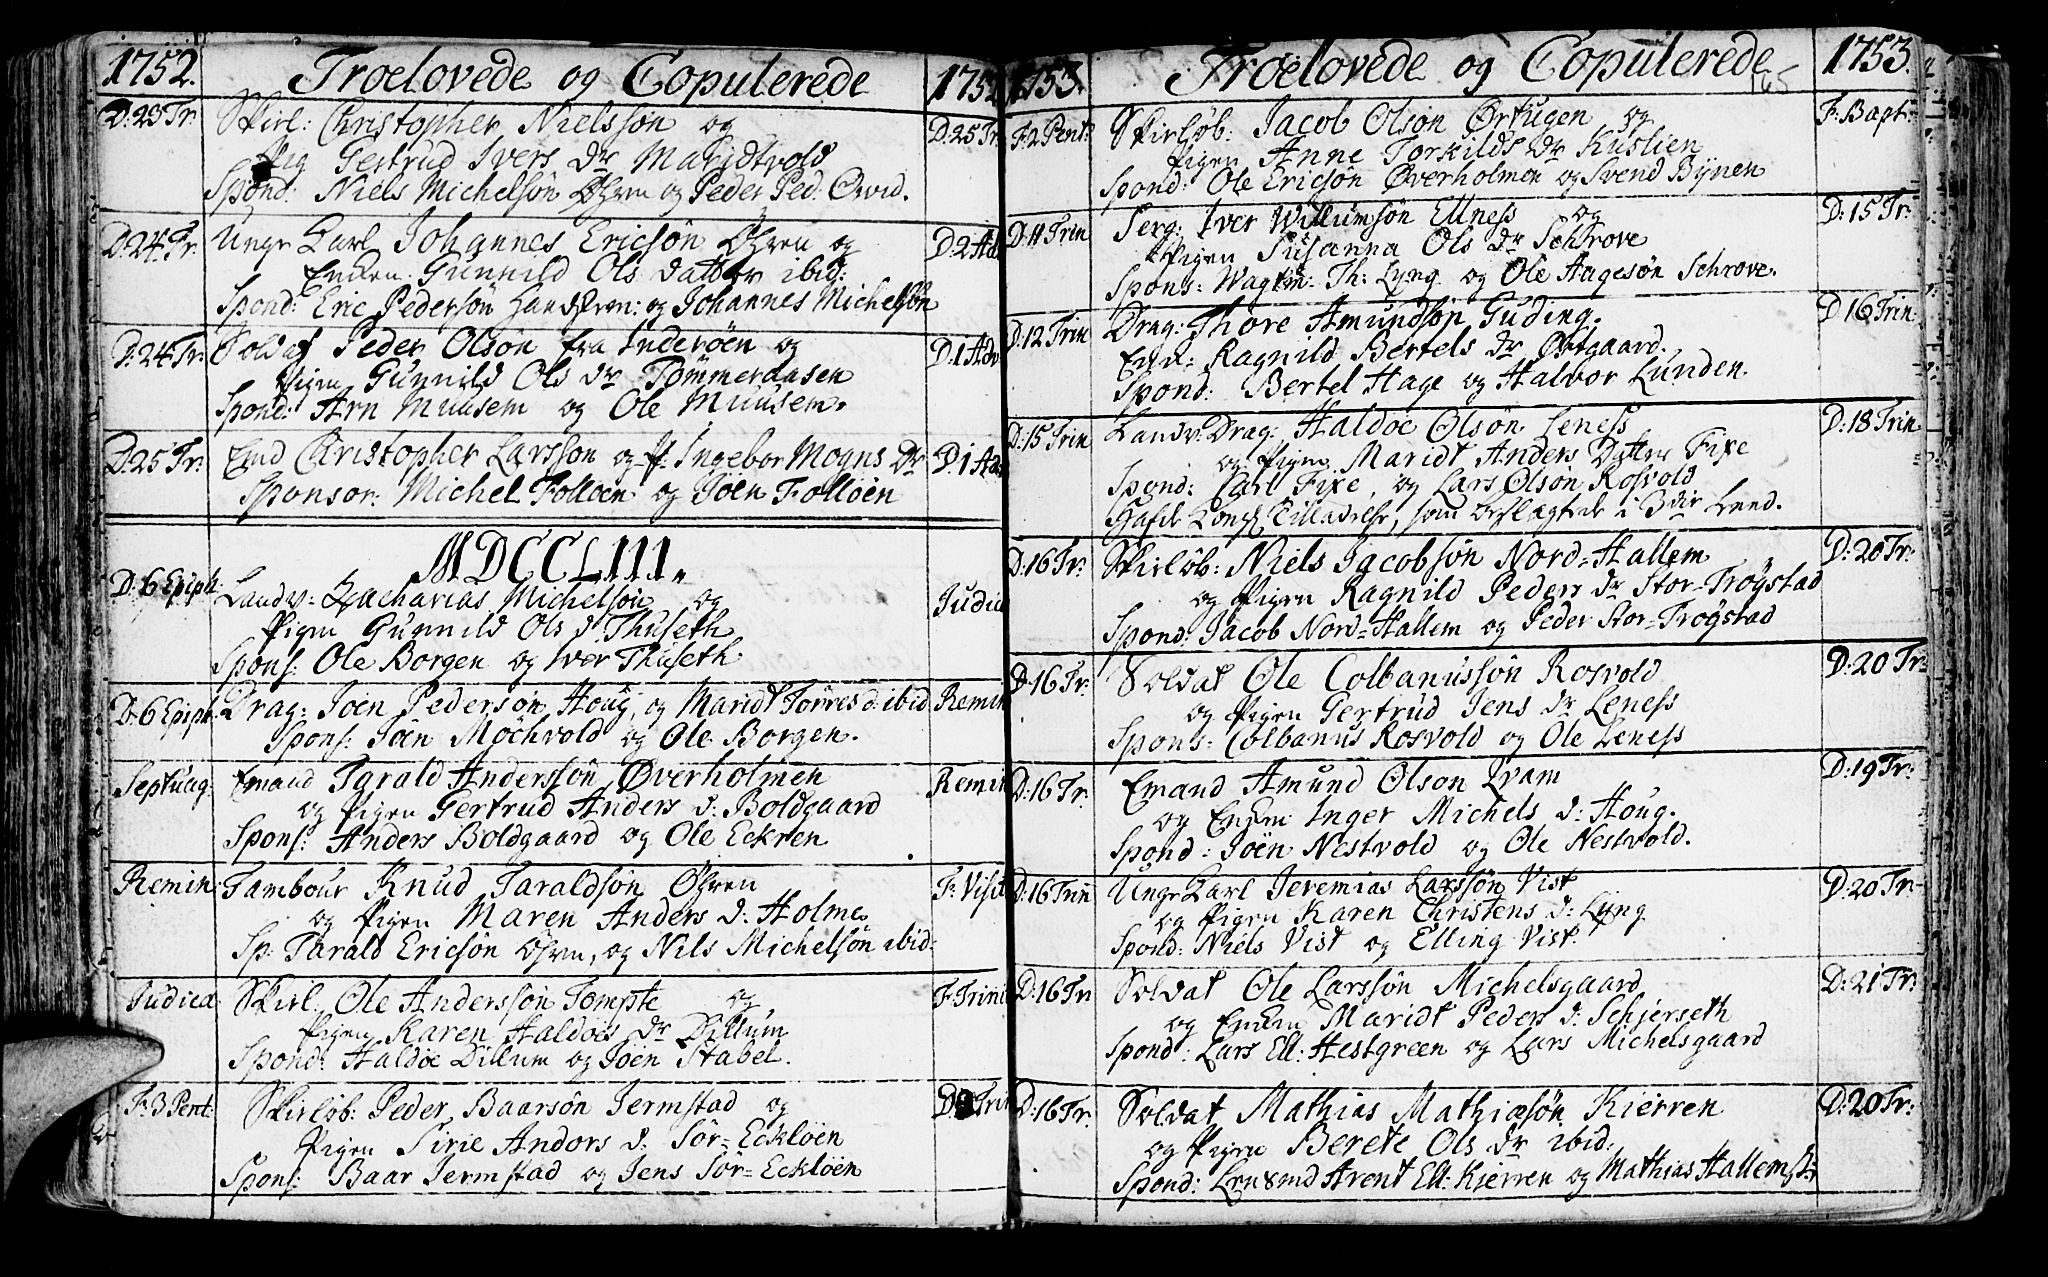 1752. Troelovede og Copulerede 175
D: 23 Tr. Skirl: Christopher Nielssøn og D: 25 Tr.
Pig Gertrud Ivers Dr Maridtvold
Spond: Niels Michelsøn og Peder Ped: Qvid.
D: 24 Tr: Unge Karl Johannes Ericsøn og D: 2 Ad
Enken Gunnild Ols datter ibid:
Spond: Eric Pedersøn og Johannes Michelsøn
D: 24 Tr: Soldat Peder Olsøn fra Inderøen og D: 1 Adv
Pigen Gunnild Ols Dr Tømmerdasen
Spond: Arn Muusem og Ole Muusem.
D: 25 Tr: Emd Christopher Larssøn og P: Ingebor Mogns Dr D: 1 Ad
Sponsor: Michel Folloen og Joen Folloen
MDCCLIII.
D: 6 Epiph: Landv: Zacharias Michelsøn og Judica
Pigen Gunnild Ols d. Thuseth
Spons: Ole Borgen og Iver Thuseth
D: 6 Epiph: Drag: Joen Pedersøn Houg, og Maridt Torres d: ibid Remin
Spons: Joen Mochvold og Ole Borgen.
Septuag: Emand Tarald Anderssøn Øverholmen Remin
og Pigen Gertrud Anders d: Boldgaard
Spons: Anders Boldgaard og Ole Eckren
Remin: Tambour Knud Taraldsøn F: Visit
og Pigen Maren Anders d: Holme
Sp: Tarald Ericsøn og Nils Michelsøn ibid:
Judica Skirl: Ole Anderssøn Tompte og F: Trini
Pigen Karen Haldoes Dr Dillum
Spond: Haldoe Dillum og Joen Stabel.
F: 3 Pent: Skirløb: Peder Baarsøn Jermstad og Trin
Pigen Sirie Andors d: Sør=Eckløen
Spons: Baar Jermstad og Jens Sør=Eckløen
1753. Troelovede og Copulerede 1753.
165
F: 2 Pent: Skirløb: Jacob Olson Ørtugen og F: Bapt:
Pigen Anne Torkilds Dr Kuslien
Spond: Ole Ericsøn Øverholmen og Svend Bynen
D: 11 Trin Serg: Iver Willumsøn Ellness og D: 15 Tr:
Pigen Susanna Ols Dr Schrove
Spons: Wagtm: Th: Lyng og Ole Aagesøn Schrove.
D: 12 Trin Drag: Thore Amundsøn Guding. D 16 Trin
Enk: Ragnild Bertels Dr Østgaard.
Spond: Bertel Hage og Halvor Lunden
D: 15 Trin Landv: Drag: Haldoe Olsøn Leness D: 18 Trin
og Pigen Maridt Anders Datter Fixe
Spond: Carl Fixe, og Lars Olson Rosvold
Hafde Kongl Tilladelse, som beslægtede i 3die Leed.
D: 16 Tr: Skirløb: Niels Jacobsøn Nord=Hallem D: 20 Tr:
og Pigen Ragnild Peders Dr Stor=Trøgstad
Spond: Jacob Nord=Hallem og Peder Stor=Trøgstad
D: 16 Tr: Soldat Ole Colbanussøn Rosvold D: 20 Tr:
og Pigen Gertrud Jens Dr Leness
Spons: Colbanus Rosvold og Ole Leness
D: 16 Tr. Emand Amund Olson Qvam D: 19 Tr:
og Enken Inger Michels d: Houg.
Spond: Joen Nestvold og Ole Nestvold.
D: 16 Trin Unge Karl Jeremias Larssøn Vist D: 20 Tr:
og Pigen Karen Christens d: Lyng
Spond: Niels Vist og Elling Vist.
D: 16 Tr Soldat Ole Larssøn Michelsgaard D: 21 Tr:
og Enken Maridt Peders d: Schjerseth
Spond: Lars Ell: Hestgreen og Lars Michelsgaard
D: 16 Tr. Soldat Mathias Mathiæsøn Kierren D: 20 Tr:
og Pigen Berete Ols Dr ibid:
Spond: Lensmd Arent Ell: Kierren og Mathias Hallem